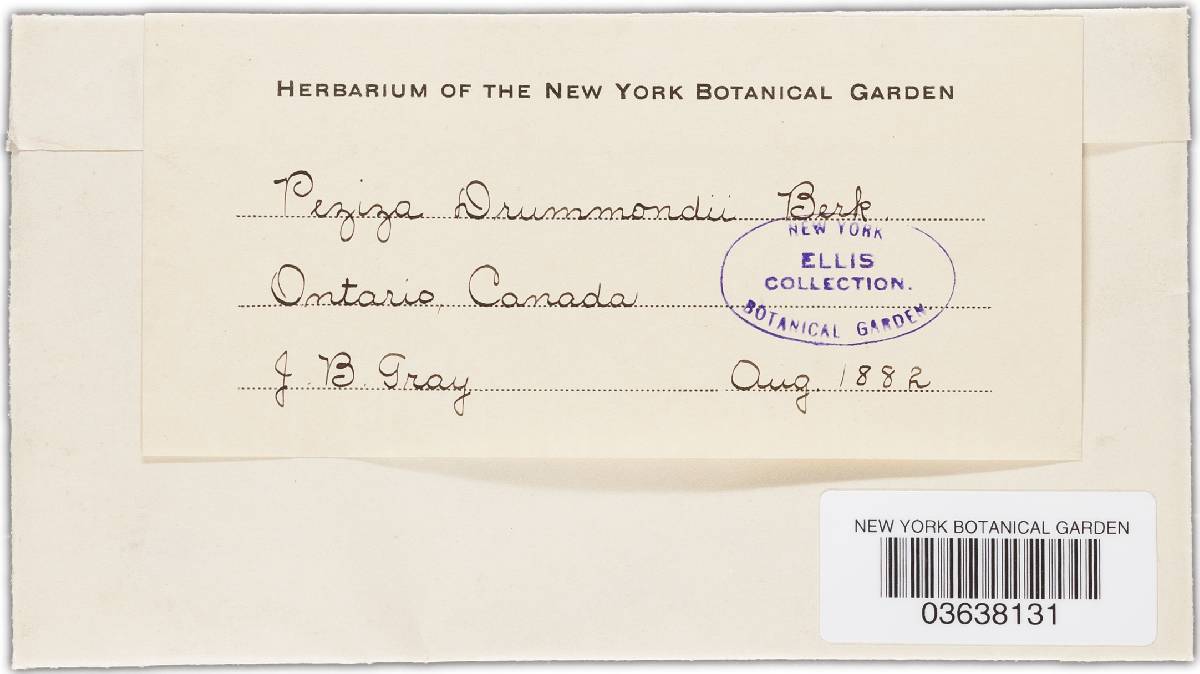 HERBARIUM OF THE NEW YORK BOTANICAL GARDEN
Peziza Drummondii Berk.
Ontario, Canada
J. B. Gray Aug. 1882
NEW YORK
ELLIS
COLLECTION.
BOTANICAL GARDEN.
NEW YORK BOTANICAL GARDEN
03638131